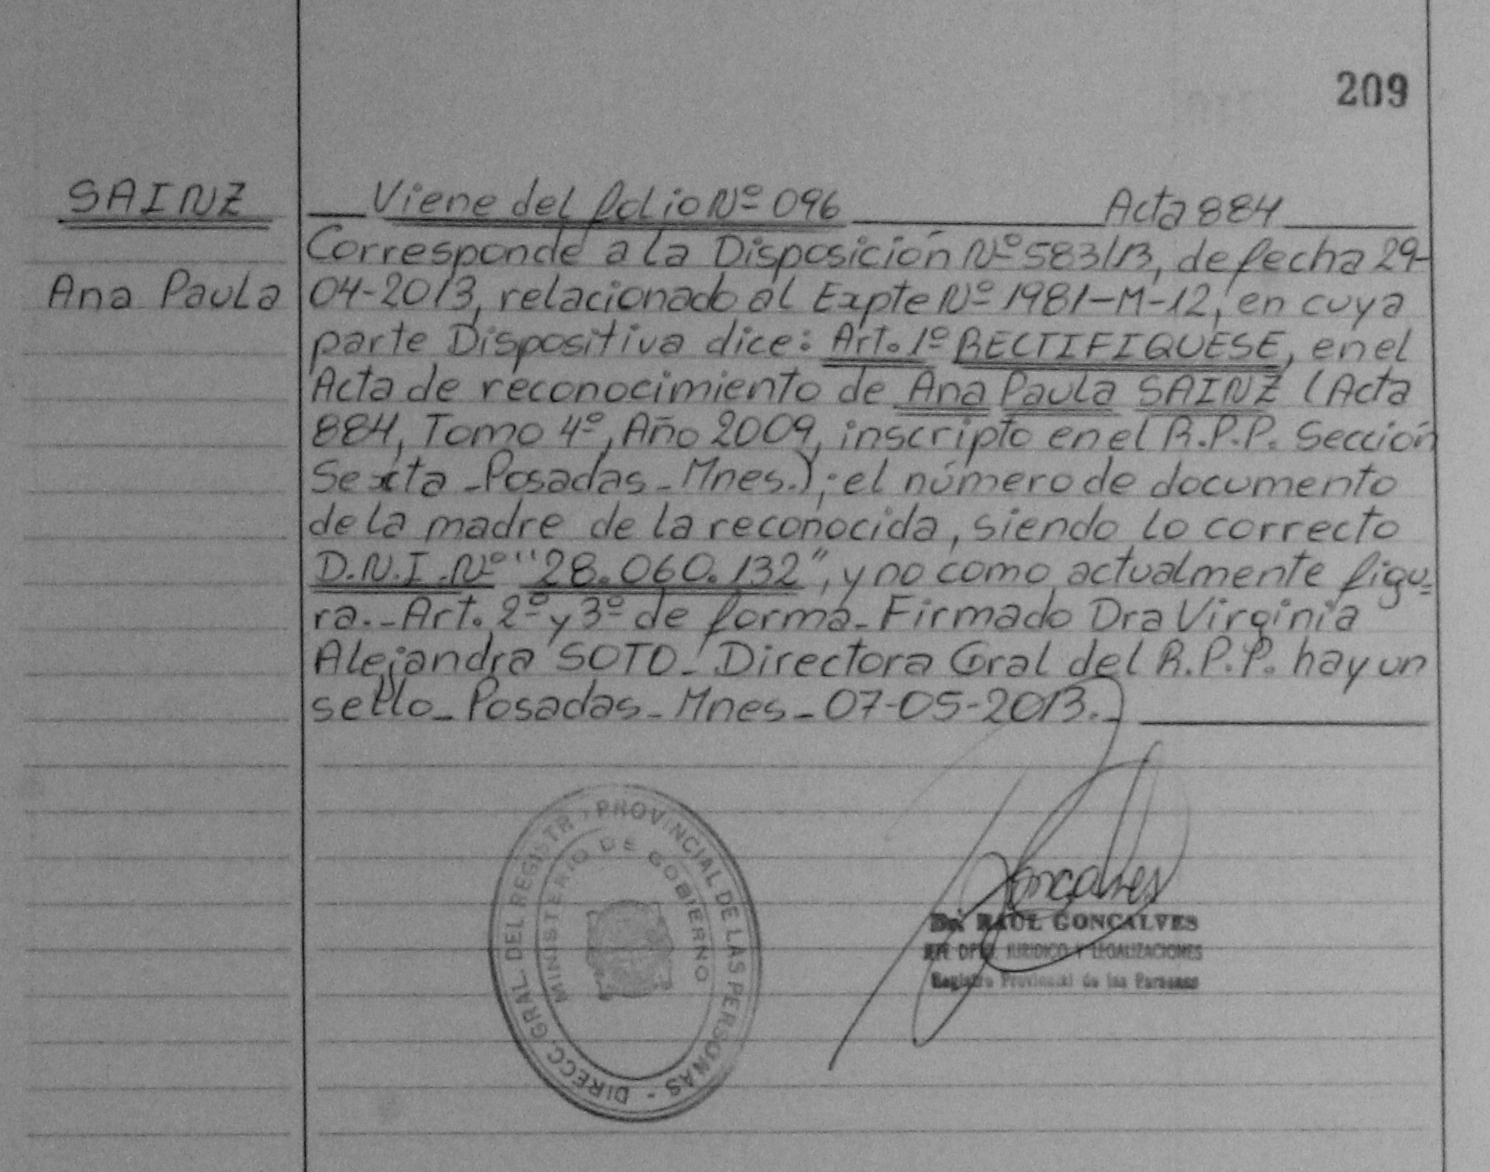 209
SAINZ
Ana Paula
Viene del folio Nº 096 Acta 884
Corresponde a la Disposición Nº 583/13, de fecha 29-
04-2013, relacionado al Expte Nº 1981-M-12, en cuya
parte Dispositiva dice: Art. 1º RECTIFIQUESE, en el
Acta de reconocimiento de Ana Paula SAINZ (Acta
884, Tomo 4º, Año 2009, inscripto en el R.P.P. Sección
Sexta - Posadas - Mnes.); el número de documento
de la madre de la reconocida, siendo lo correcto
D.N.I. Nº "28.060.132", y no como actualmente figu-
ra. - Art. 2º y 3º de forma - Firmado Dra Virginia
Alejandra SOTO - Directora Gral del R.P.P. hay un
sello - Posadas - Mnes - 07-05-2013. -
DIRECC. GRAL. DEL REGISTR PROVINCIAL DE LAS PERSONAS -
MINISTERIO DE GOBIERNO
Goncalves
Dr. RAUL GONCALVES
JEFE DPTO. JURIDICO Y LEGALIZACIONES
Registro Provincial de las Personas